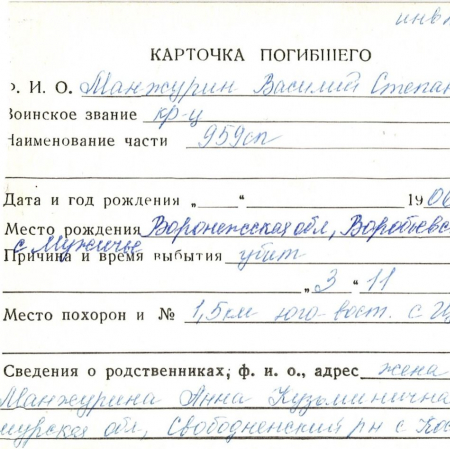 инв
КАРТОЧКА ПОГИБШЕГО
Ф. И. О. Манжурин Василий Степан
Воинское звание кр-ц
Наименование части 959сп
Дата и год рождения „ “ 190
Место рождения Воронежская обл, Воробьевс
с Мужичье
Причина и время выбытия убит
„ 3 “ 11
Место похорон и № 1,5км юго-вост. с
Сведения о родственниках, ф. и. о., адрес жена
Манжурина Анна Кузьминична
мурская обл, Свободненский рн с